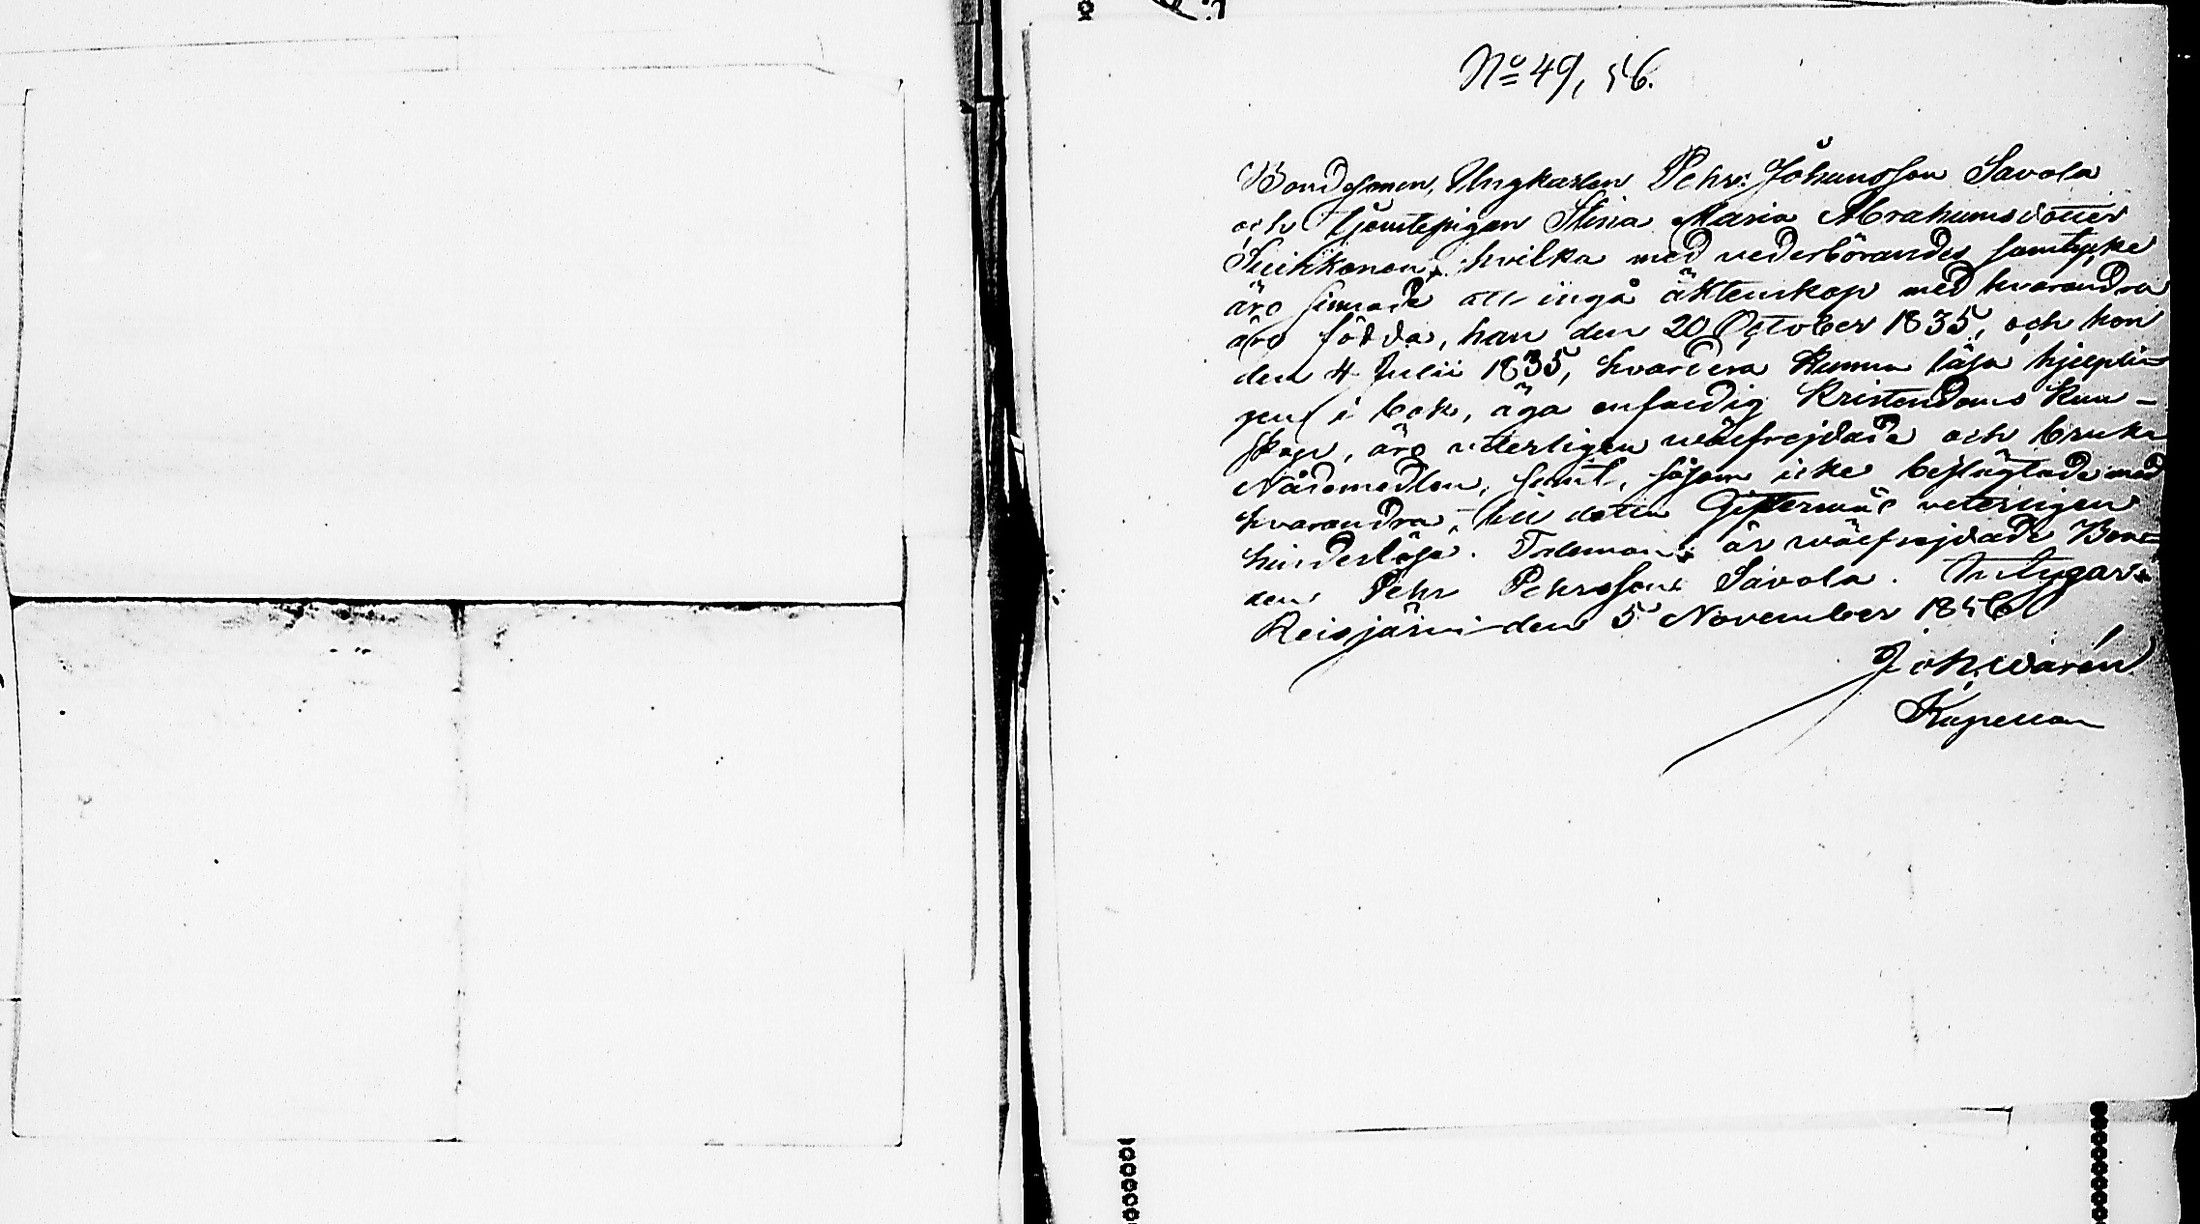 No 49, 56.
Bondsonen, Ungkarlen Pehr Johansson Savola
och tjenstepigan Stina Maria Abrahamsdotter
hvilka med vederbörandes samtycke
äro sinnade att ingå äktenskap med hvarandra
äro födda, han den 20 October 1835, och hon
den 4 Julii 1835, hvardera kunna läsa hjelpli-
gen i bok, äga enfaldig Kristendoms kun-
skap, äro veterligen wälfrejdade och bruka
Nådemedlen, samt, såsom icke beslägtade med
hvarandra, till detta Giftermål veterligen
hinderlösa. Taleman är wälfrejdade Bon-
den Pehr Pehrsson Savola. Intygar
Reisjärvi den 5 November 1856
Joh. Warén
Kapellan